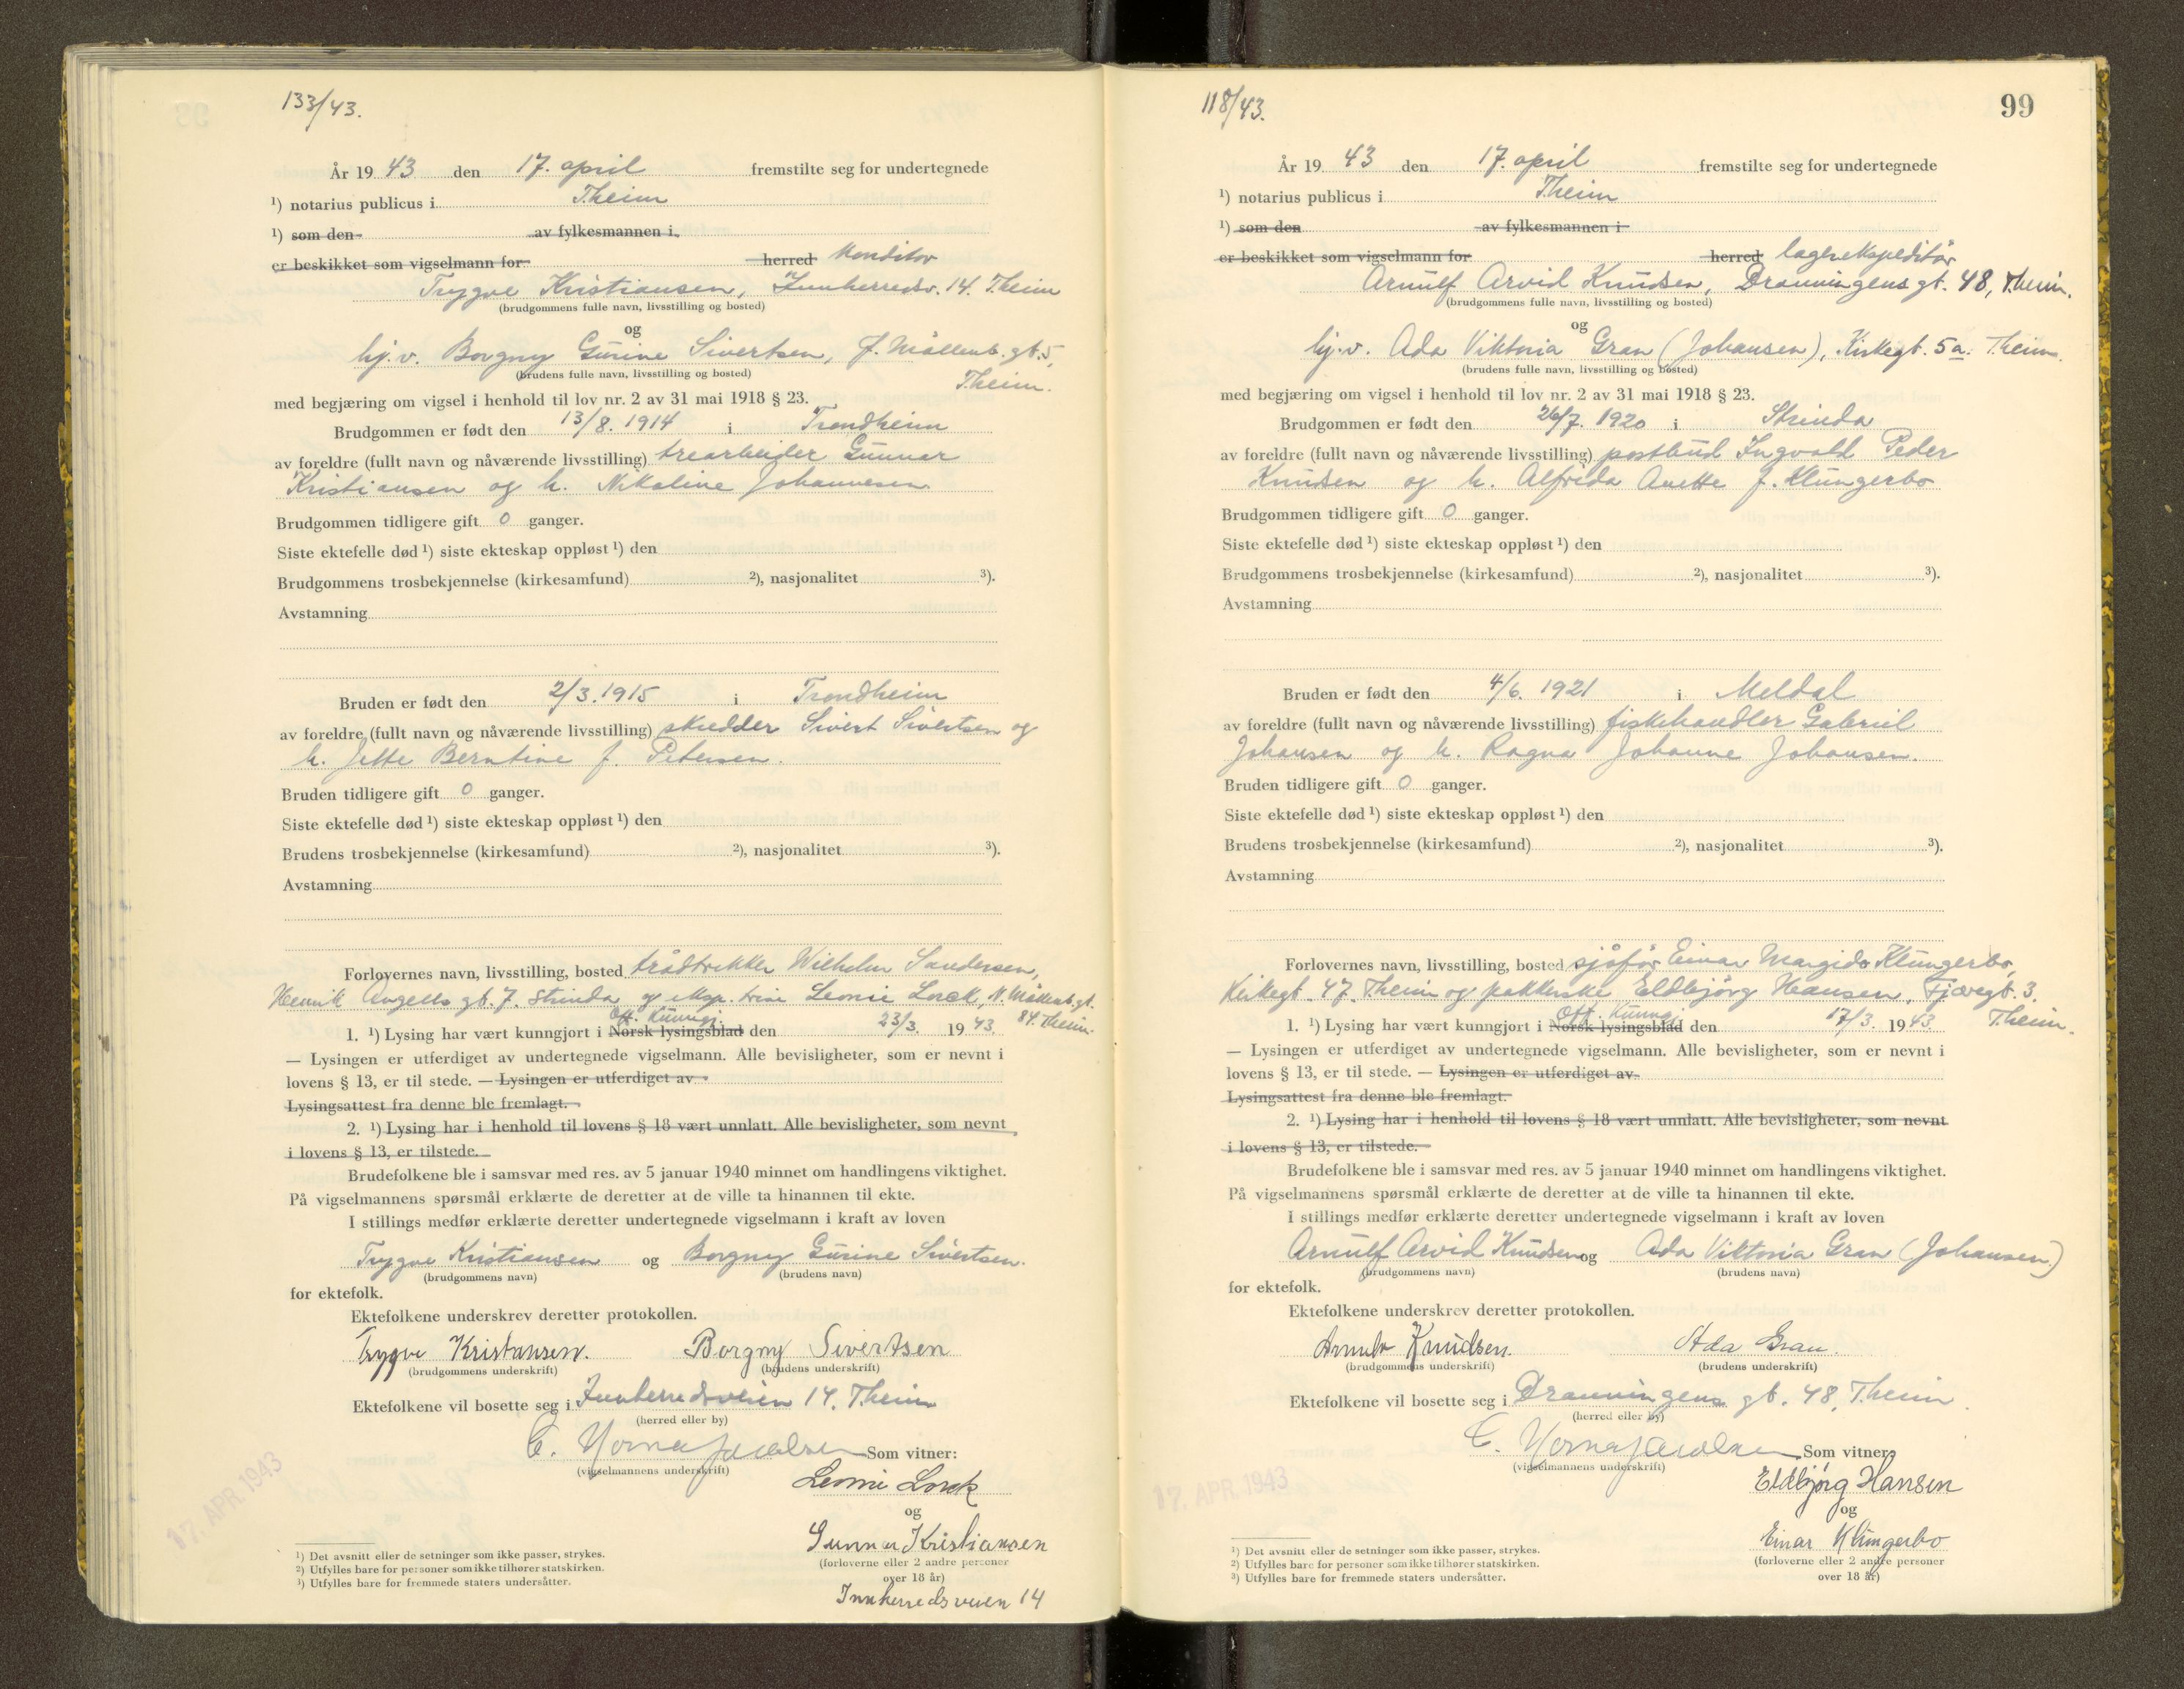 133/43.
År 19 43 den 17. april fremstilte seg for undertegnede
¹) notarius publicus i Theim
¹) som den av fylkesmannen i
er beskikket som vigselmann for herred Konditor
Trygve Kristiansen, Innherredsv. 14. Theim
(brudgommens fulle navn, livsstilling og bosted)
og
hj.v. Borgny Gurine Sivertsen, f. Møllenb. gt. 5,
(brudens fulle navn, livsstilling og bosted) Theim.
med begjæring om vigsel i henhold til lov nr. 2 av 31 mai 1918 § 23.
Brudgommen er født den 13/8. 1914 i Trondheim
av foreldre (fullt navn og nåværende livsstilling) trearbeider Gunnar
Kristiansen og h. Nikoline Johannesen
Brudgommen tidligere gift 0 ganger.
Siste ektefelle død ¹) siste ekteskap oppløst ¹) den
Brudgommens trosbekjennelse (kirkesamfund) ²), nasjonalitet ³).
Avstamning
Bruden er født den 2/3. 1915 i Trondheim
av foreldre (fullt navn og nåværende livsstilling) skredder Sivert Sivertsen og
h. Jette Berntine f. Petersen.
Bruden tidligere gift 0 ganger.
Siste ektefelle død ¹) siste ekteskap oppløst ¹) den
Brudens trosbekjennelse (kirkesamfund) ²), nasjonalitet ³).
Avstamning
Forlovernes navn, livsstilling, bosted trådtrekker Wilhelm Sandersen,
Henrik Angells gt. 7. Strinda og eksp. trise Leonie Lorck, N. Møllenb. gt.
84. Theim.
Off. Kunngj.
1. ¹) Lysing har vært kunngjort i Norsk lysingsblad den 23/3. 19 43.
— Lysingen er utferdiget av undertegnede vigselmann. Alle bevisligheter, som er nevnt i
lovens § 13, er til stede. — Lysingen er utferdiget av
Lysingsattest fra denne ble fremlagt.
2. ¹) Lysing har i henhold til lovens § 18 vært unnlatt. Alle bevisligheter, som nevnt
i lovens § 13, er tilstede.
Brudefolkene ble i samsvar med res. av 5 januar 1940 minnet om handlingens viktighet.
På vigselmannens spørsmål erklærte de deretter at de ville ta hinannen til ekte.
I stillings medfør erklærte deretter undertegnede vigselmann i kraft av loven
Trygve Kristiansen og Borgny Gurine Sivertsen.
(brudgommens navn) (brudens navn)
for ektefolk.
Ektefolkene underskrev deretter protokollen.
Trygve Kristiansen. Borgny Sivertsen
(brudgommens underskrift) (brudens underskrift)
Ektefolkene vil bosette seg i Innherredsveien 14. Theim
(herred eller by)
Som vitner:
(vigselmannens underskrift)
Leonie Lorck
og
Gunnar Kristiansen
(forloverne eller 2 andre personer
over 18 år)
Innherredsveien 14
17. APR. 1943
¹) Det avsnitt eller de setninger som ikke passer, strykes.
²) Utfylles bare for personer som ikke tilhører statskirken.
³) Utfylles bare for fremmede staters undersåtter.
118/43.
99
År 19 43 den 17. april fremstilte seg for undertegnede
¹) notarius publicus i Theim
¹) som den av fylkesmannen i
er beskikket som vigselmann for herred lagerekspeditør
Arnulf Arvid Knudsen, Dronningens gt. 48, Theim.
(brudgommens fulle navn, livsstilling og bosted)
og
hj.v. Ada Viktoria Gran (Johansen), Kirkegt. 5a. Theim.
(brudens fulle navn, livsstilling og bosted)
med begjæring om vigsel i henhold til lov nr. 2 av 31 mai 1918 § 23.
Brudgommen er født den 26/7. 1920 i Strinda
av foreldre (fullt navn og nåværende livsstilling) postbud Ingvald Peder
Knudsen og h. Alfrida Anette f. Klungerbo
Brudgommen tidligere gift 0 ganger.
Siste ektefelle død ¹) siste ekteskap oppløst ¹) den
Brudgommens trosbekjennelse (kirkesamfund) ²), nasjonalitet ³).
Avstamning
Bruden er født den 4/6. 1921 i Meldal
av foreldre (fullt navn og nåværende livsstilling) fiskehandler Gabriel
Johansen og h. Ragna Johanne Johansen.
Bruden tidligere gift 0 ganger.
Siste ektefelle død ¹) siste ekteskap oppløst ¹) den
Brudens trosbekjennelse (kirkesamfund) ²), nasjonalitet ³).
Avstamning
Forlovernes navn, livsstilling, bosted sjåfør Einar Margido Klungerbo,
Kirkegt. 47. Theim og pakkerske Eldbjørg Hansen, Fjæregt. 3.
Theim.
Off. Kunngj.
1. ¹) Lysing har vært kunngjort i Norsk lysingsblad den 17/3. 19 43.
— Lysingen er utferdiget av undertegnede vigselmann. Alle bevisligheter, som er nevnt i
lovens § 13, er til stede. — Lysingen er utferdiget av
Lysingsattest fra denne ble fremlagt.
2. ¹) Lysing har i henhold til lovens § 18 vært unnlatt. Alle bevisligheter, som nevnt
i lovens § 13, er tilstede.
Brudefolkene ble i samsvar med res. av 5 januar 1940 minnet om handlingens viktighet.
På vigselmannens spørsmål erklærte de deretter at de ville ta hinannen til ekte.
I stillings medfør erklærte deretter undertegnede vigselmann i kraft av loven
Arnulf Arvid Knudsen og Ada Viktoria Gran (Johansen)
(brudgommens navn) (brudens navn)
for ektefolk.
Ektefolkene underskrev deretter protokollen.
Arnulf Knudsen. Ada Gran.
(brudgommens underskrift) (brudens underskrift)
Ektefolkene vil bosette seg i Dronningens gt. 48, Theim
(herred eller by)
Som vitner:
(vigselmannens underskrift)
Eldbjørg Hansen
og
Einar Klungerbo
(forloverne eller 2 andre personer
over 18 år)
17. APR. 1943
¹) Det avsnitt eller de setninger som ikke passer, strykes.
²) Utfylles bare for personer som ikke tilhører statskirken.
³) Utfylles bare for fremmede staters undersåtter.